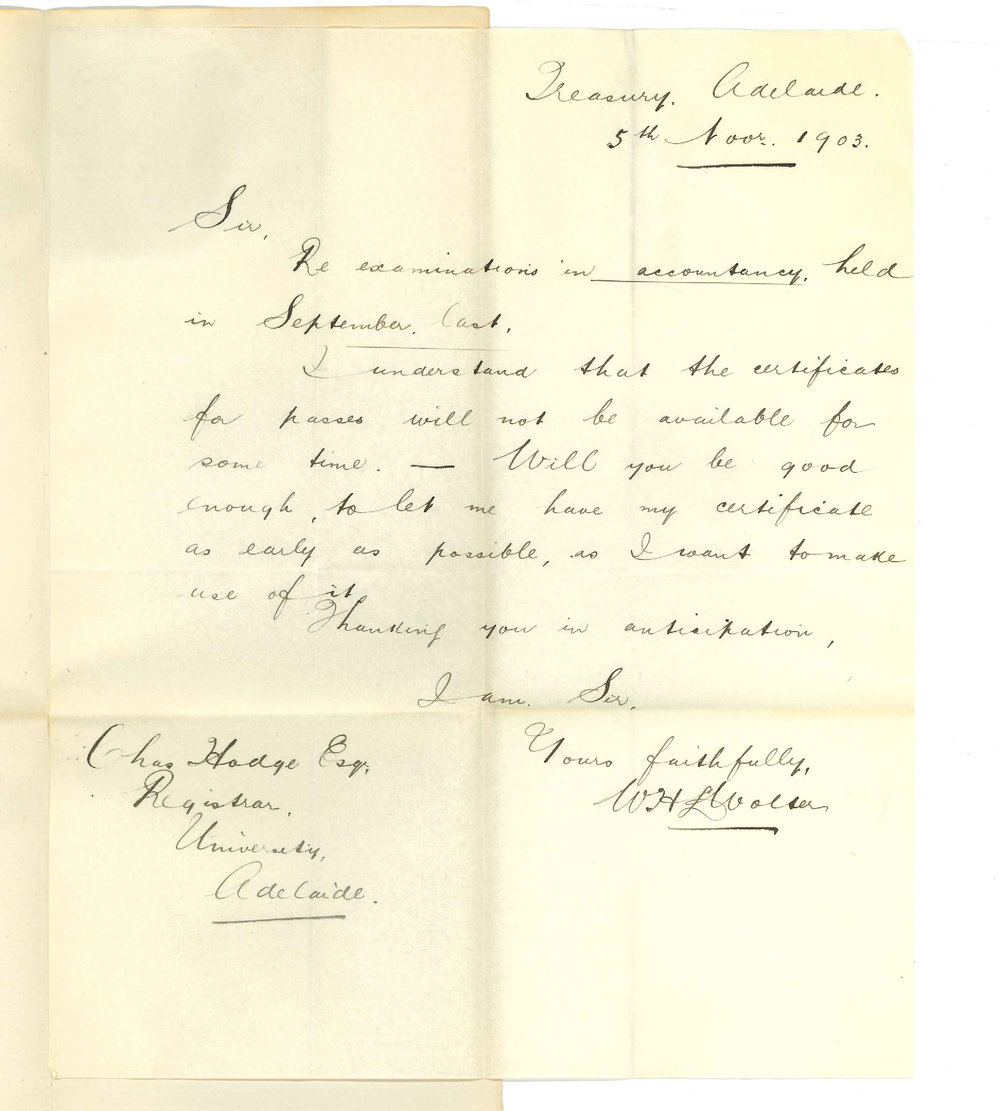 Treasury. Adelaide.
5th Novr. 1903.
Sir,
Re examinations in accountancy, held
in September last.
I understand that the certificates
for passes will not be available for
some time. — Will you be good
enough, to let me have my certificate
as early as possible, as I want to make
use of it
Thanking you in anticipation,
I am. Sir.
Yours faithfully,
Chas Hodge Esq.
Registrar,
University,
Adelaide.